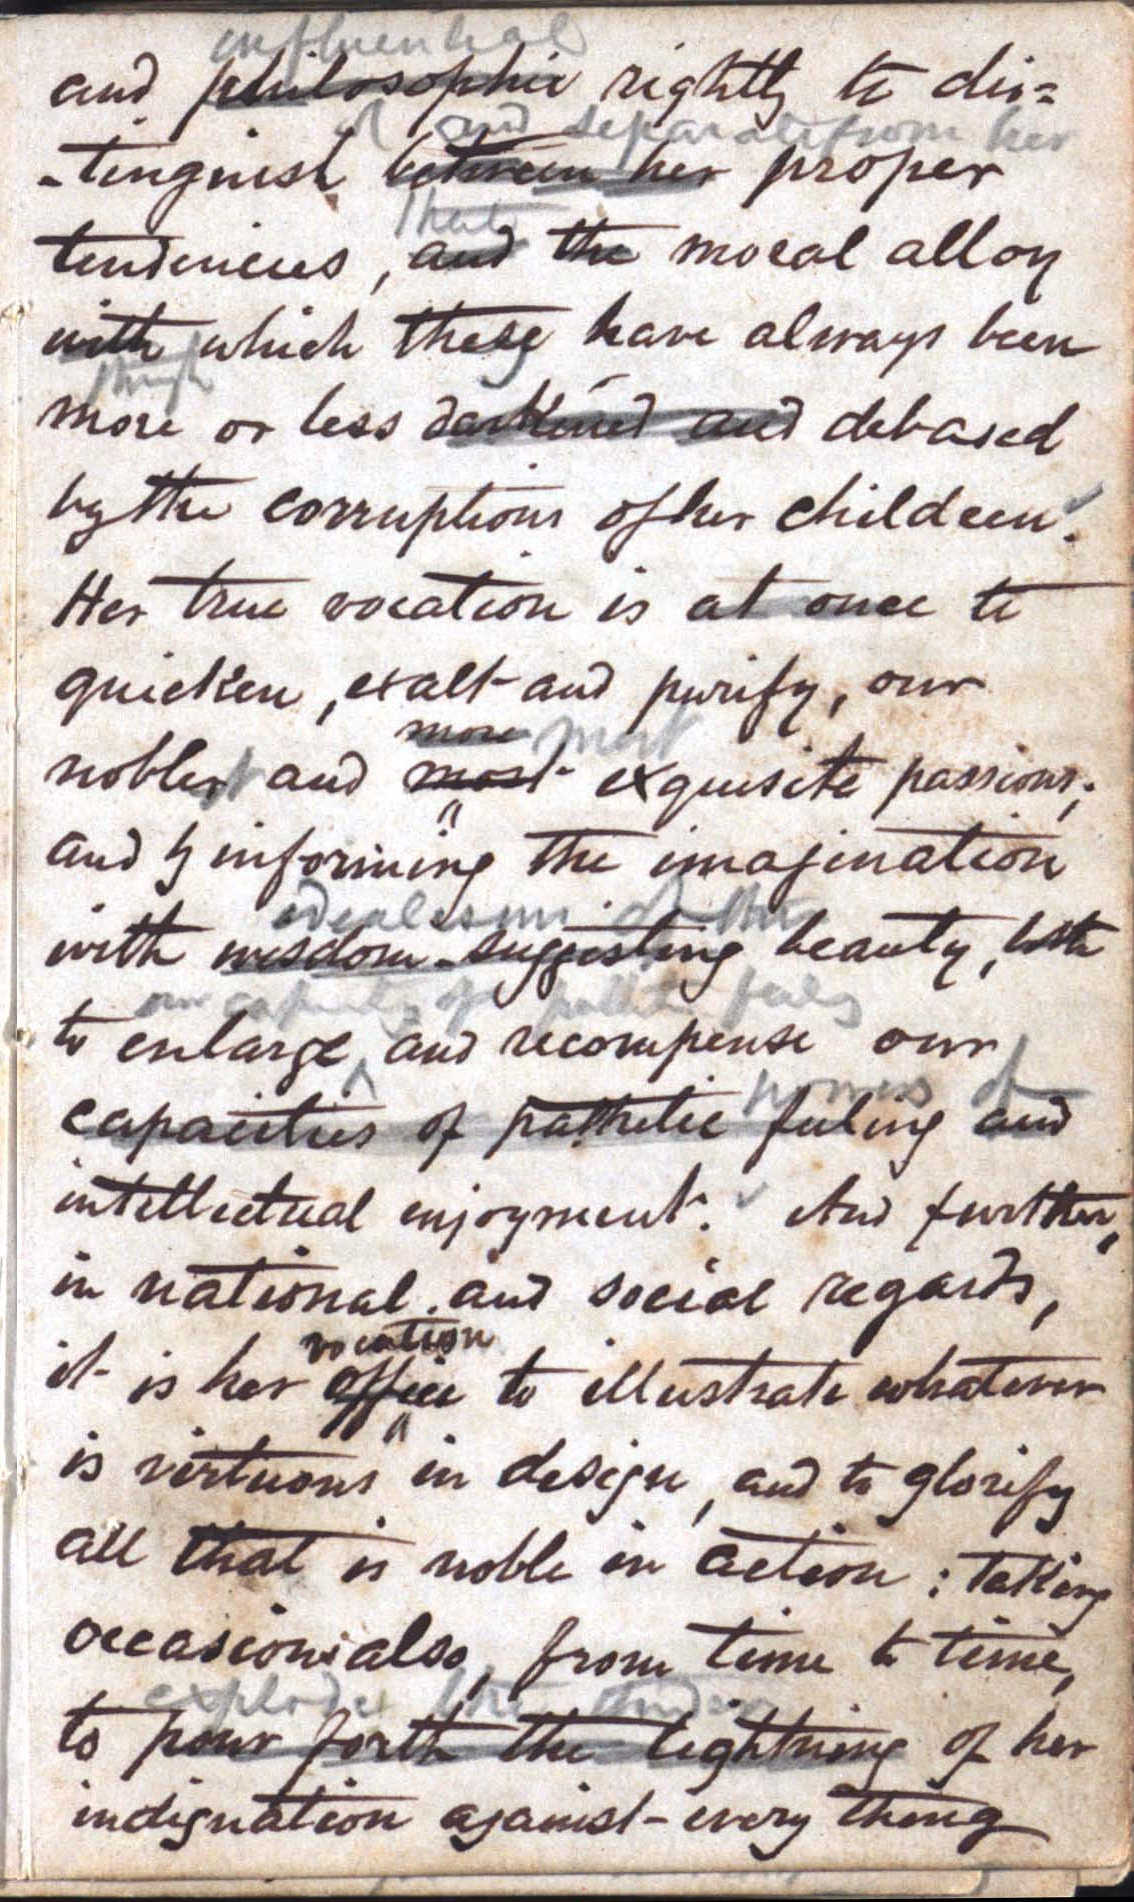 influential
and philosophic rightly to dis=
and separate from her
-tinguish between her proper
that
tendencies, and the moral alloy
with which these have always been
more or less darkened and debased
by the corruptions of her children.
Her true vocation is at once to
quicken, exalt and purify, our
more most
noblest and most exquisite passions;
and by informing the imagination
idealisms of the
with wisdom-suggesting beauty, both
our capacity of
to enlarge, and recompense our
powers of
capacities of pathetic feeling and
intellectual enjoyment. And further,
in national and social regards,
vocation
it is her office to illustrate whatever
is virtuous in design, and to glorify
all that is noble in action: taking
occasions also, from time to time,
explode the
to pour forth the lightning of her
indignation against every thing